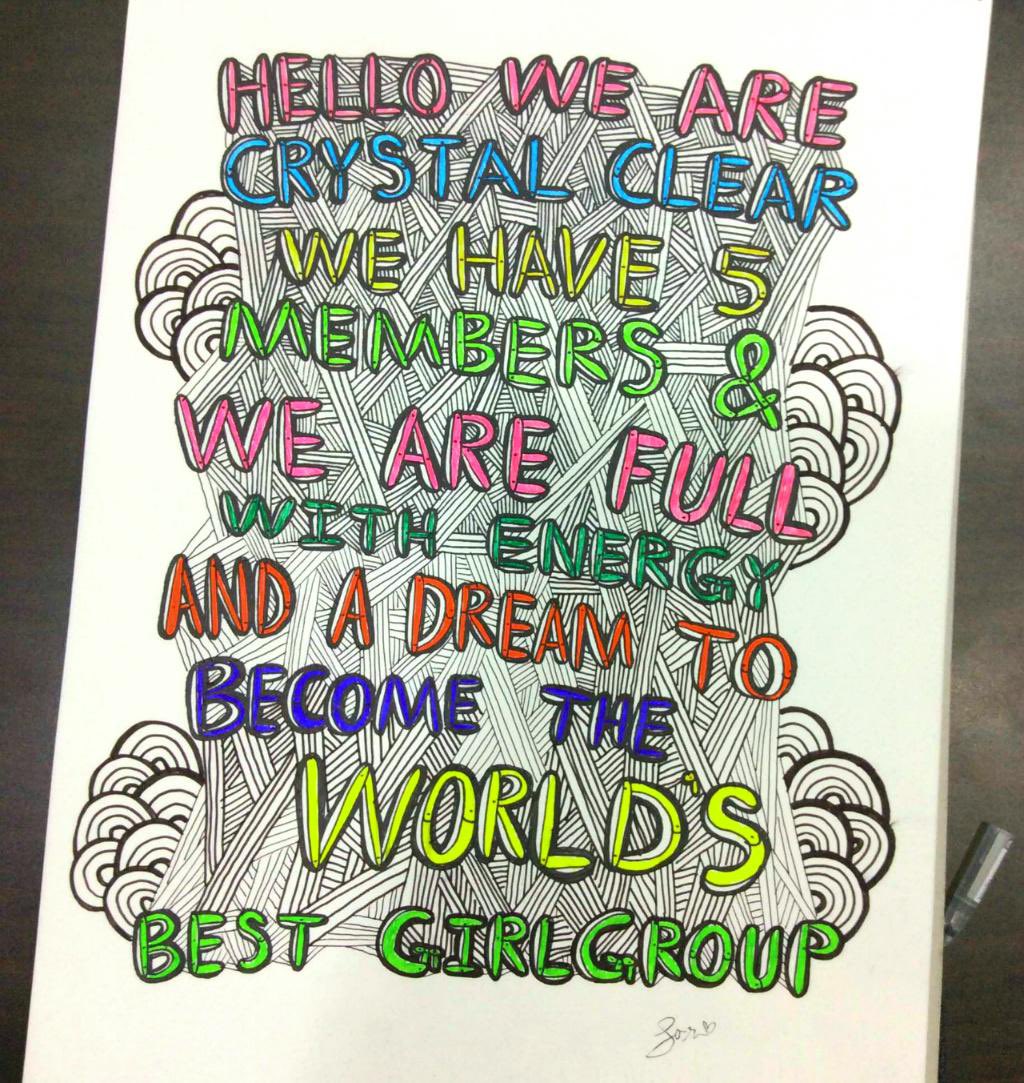 HELLO WE ARE
CRYSTAL CLEAR
WE HAVE 5
MEMBERS &
WE ARE FULL
WITH ENERGY
AND A DREAM TO
BECOME THE
WORLD'S
BEST GIRLGROUP